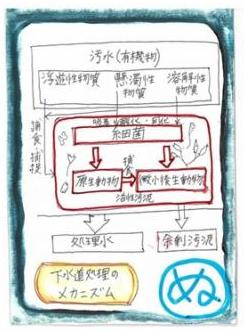 汚水(有機物)
浮遊性物質
懸濁性
物質
溶解性
物質
捕食 捕捉
細菌
捕食
原生動物
微小後生動物
活性汚泥
処理水
余剰汚泥
下水道処理の
メカニズム
ぬ